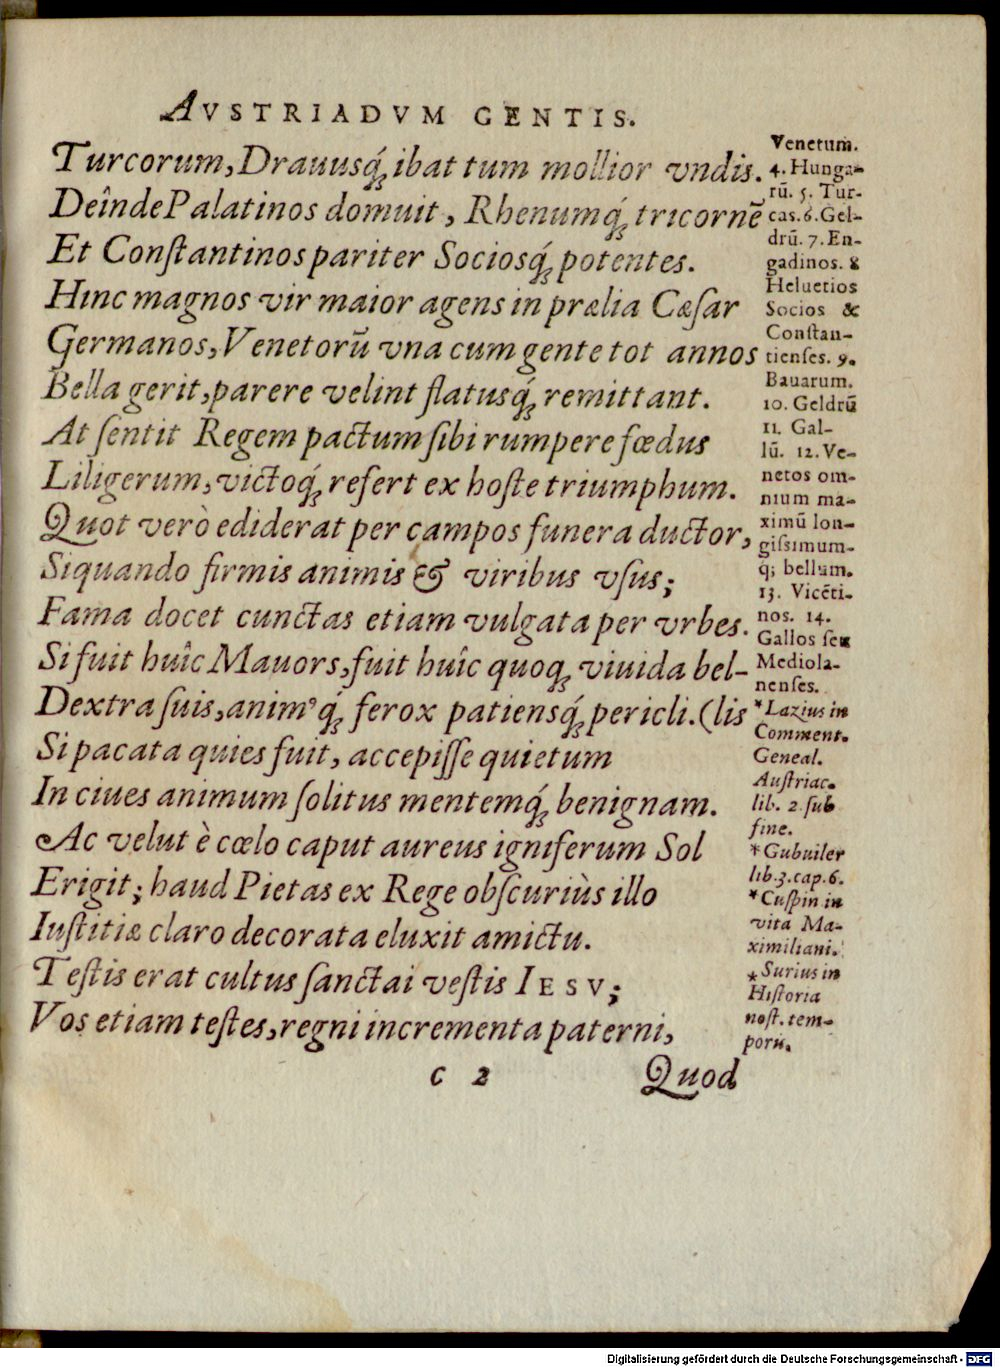 AVSTRIADVM GENTIS.
Turcorum, Drauusq́; ibat tum mollior vndis.
Deînde Palatinos domuit, Rhenumq́; tricornē
Et Constantinos pariter Sociosq́; potentes.
Hinc magnos vir maior agens in prælia Cæsar
Germanos, Venetorū vna cum gente tot annos
Bella gerit, parere velint flatusq́; remittant.
At sentit Regem pactum sibi rumpere fœdus
Liligerum, victoq́; refert ex hoste triumphum.
Quot verò ediderat per campos funera ductor,
Siquando firmis animis & viribus vsus;
Fama docet cunctas etiam vulgata per vrbes.
Si fuit huîc Mauors, fuit huîc quoq; viuida bel-
Dextra suis, animꝰq́; ferox patiensq́; pericli. (lis
Si pacata quies fuit, accepisse quietum
In ciues animum solitus mentemq́; benignam.
Ac velut è cœlo caput aureus igniferum Sol
Erigit; haud Pietas ex Rege obscuriùs illo
Iustitiæ claro decorata eluxit amictu.
Testis erat cultus sanctai vestis IESV;
Vos etiam testes, regni incrementa paterni,
C 2
Quod
Venetum.
4. Hunga-
rū. 5. Tur-
cas. 6. Gel-
drū. 7. En-
gadinos. 8
Heluetios
Socios &
Constan-
tienses. 9.
Bauarum.
10. Geldrū
11. Gal-
lū. 12. Ve-
netos om-
nium ma-
ximū lon-
gissimum-
q; bellum.
13. Vicēti-
nos. 14.
Gallos seu
Mediola-
nenses.
*Lazius in
Comment.
Geneal.
Austriac.
lib. 2 sub
fine.
*Gubuiler
lib. 3. cap. 6.
*Cuspin in
vita Ma-
ximiliani.
*Surius in
Historia
nost. tem-
porū.
Digitalisierung gefördert durch die Deutsche Forschungsgemeinschaft - DFG